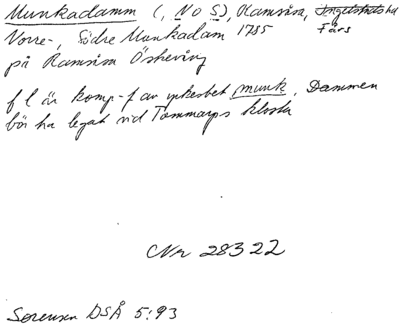 Munkadamm (, N o S), Ramsåsa, Ingelstads hd
Färs
Norre-, Södre Munkadam 1785
på Ramsåsa Österäng
f l är komp-f av yrkesbet munk. Dammen
bör ha legat vid Tommarps kloster
Nr 28322
Sørensen DSÅ 5:93